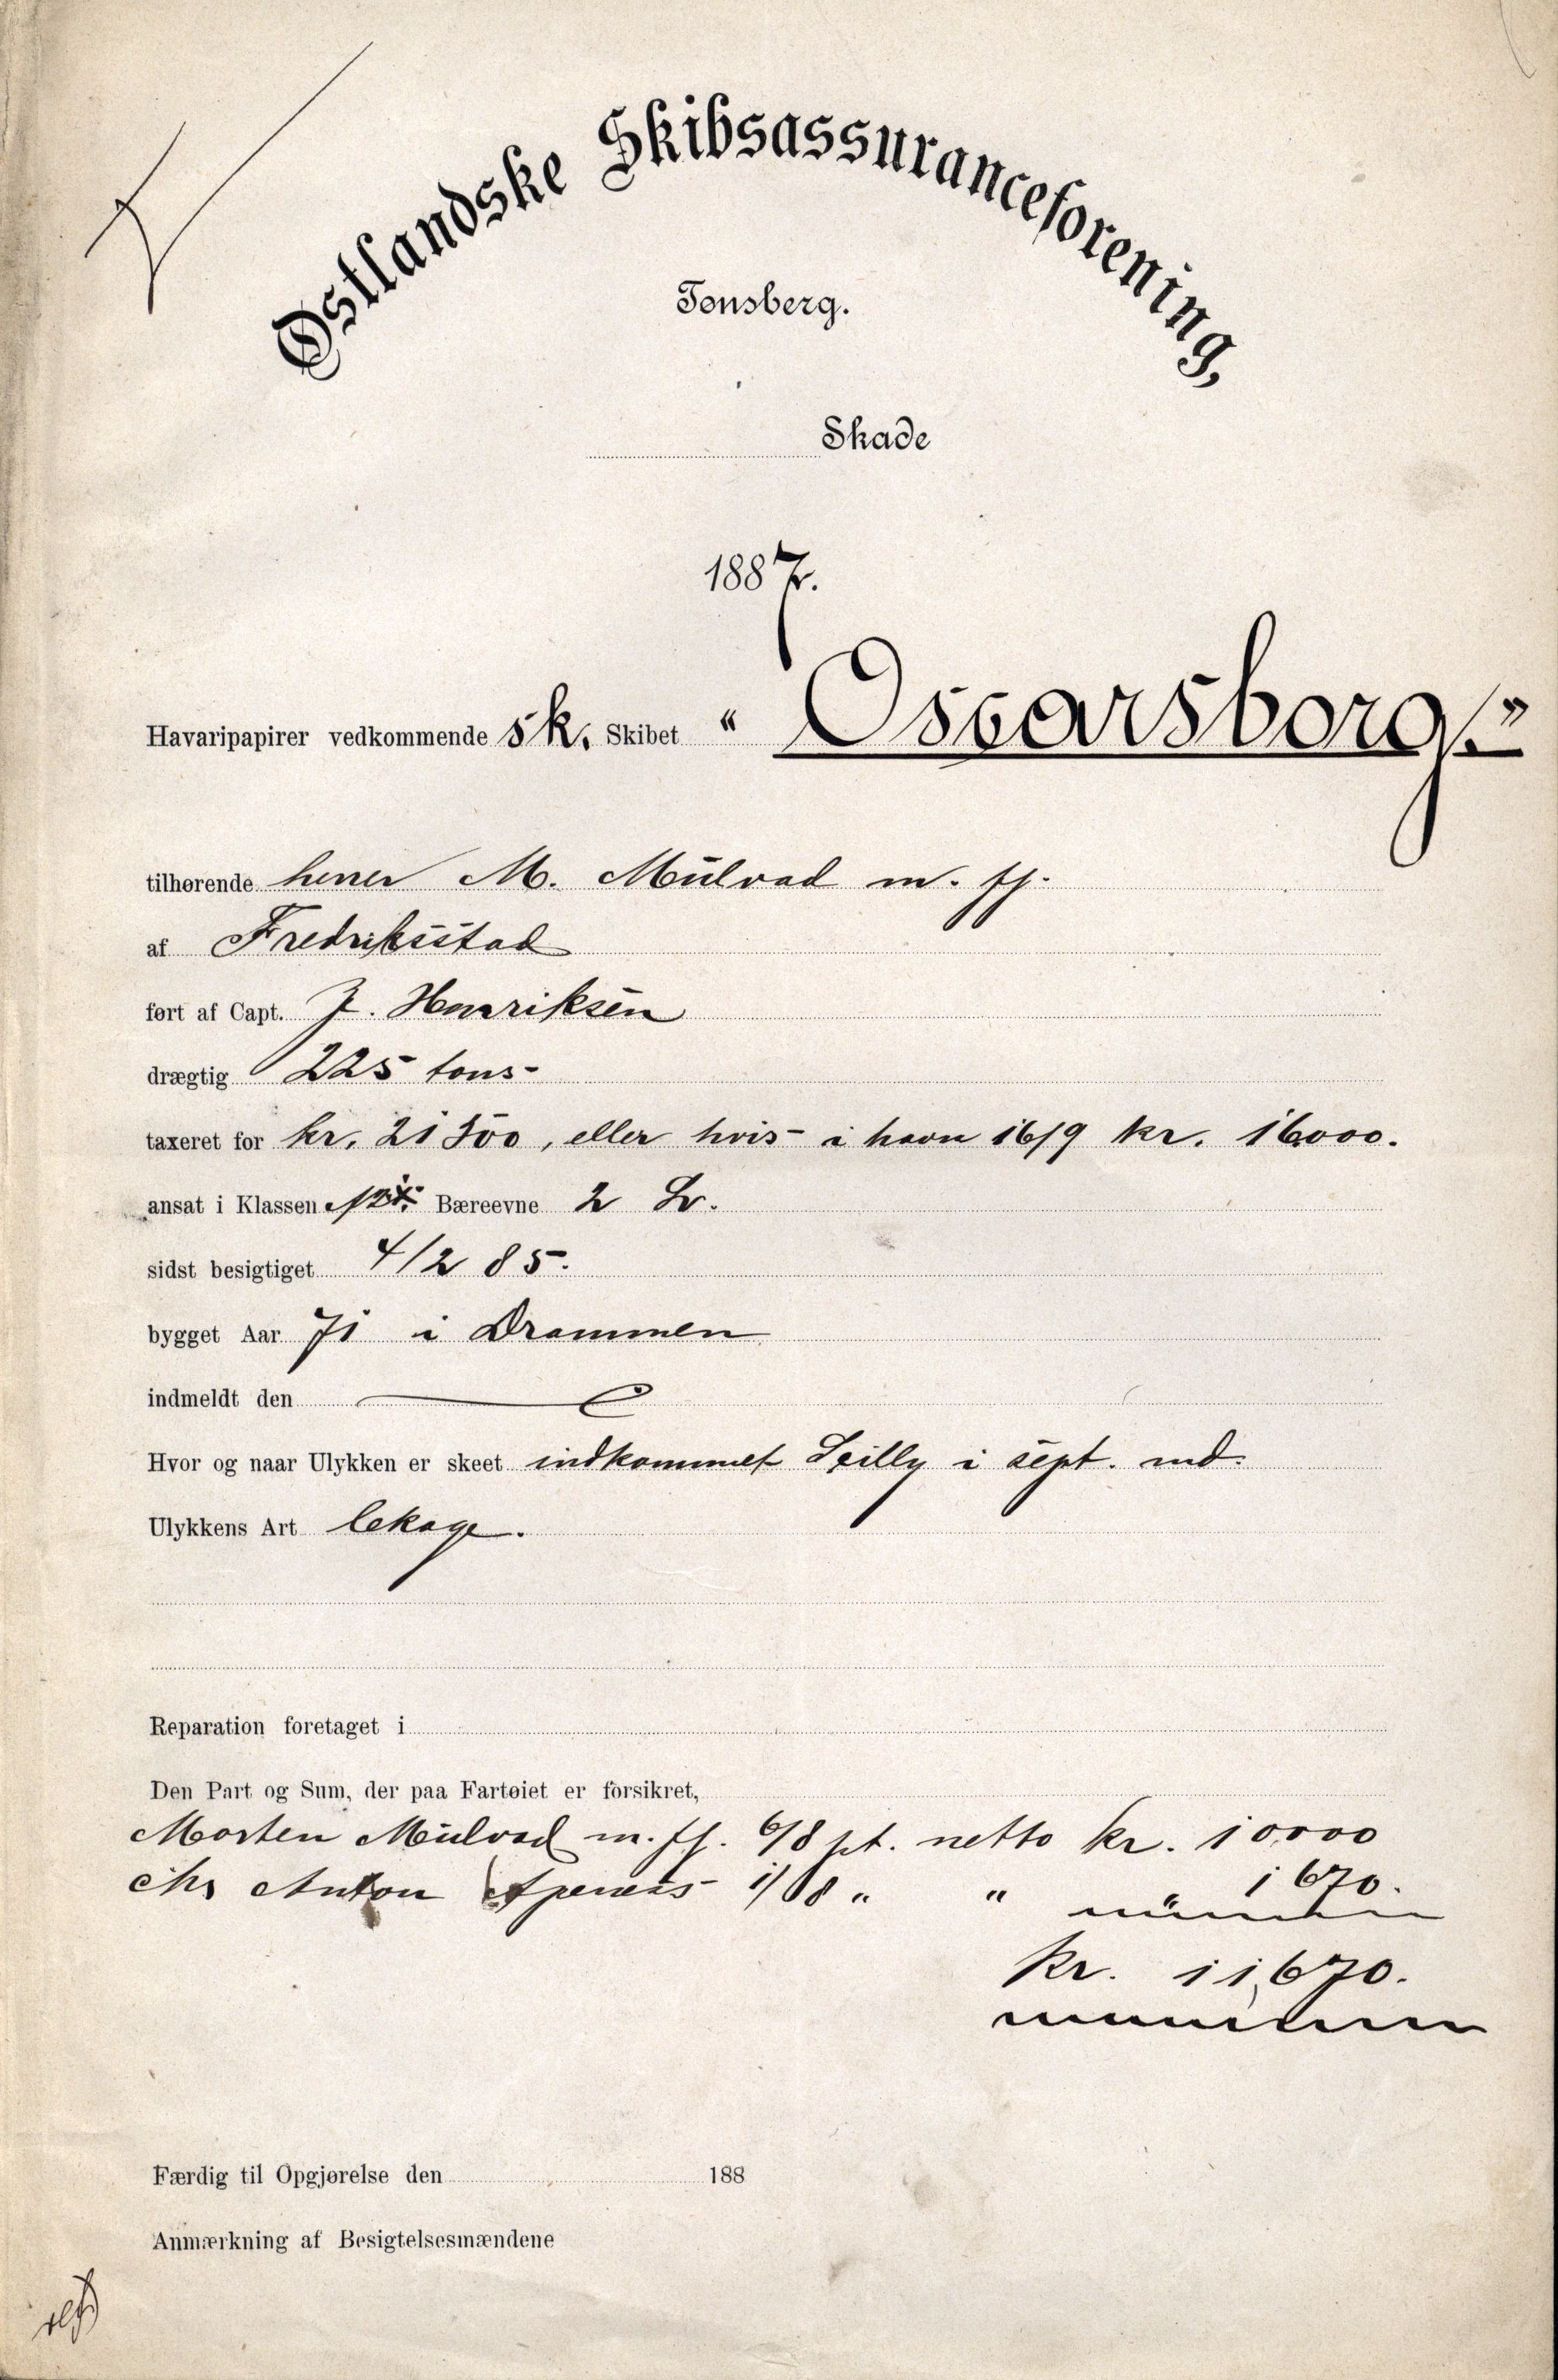 Østlandske Skibsassuranceforening,
Tønsberg.
Skade
1887.
Havaripapirer vedkommende sk. Skibet "Oscarsborg."
tilhørende herrer M. Mülvad m. fl.
af Fredriksstad
ført af Capt. J. Henriksen
drægtig 225 tons
taxeret for kr. 21500, eller hvis i havn 16/9 kr. 16000.
ansat i Klassen Bæreevne 2
sidst besigtiget 4/2 85.
bygget Aar 71 i Drammen
indmeldt den
Hvor og naar Ulykken er skeet indkommet Scilly i sept. md.
Ulykkens Art lekage.
Reparation foretaget i
Den Part og Sum, der paa Fartøiet er forsikret,
Morten Mülvad m. fl. 6/8 pt. netto kr. 10000
Anton 1/8 " " " 1670.
Kr. 11,670.
Færdig til Opgjørelse den 188
Anmærkning af Besigtelsesmændene